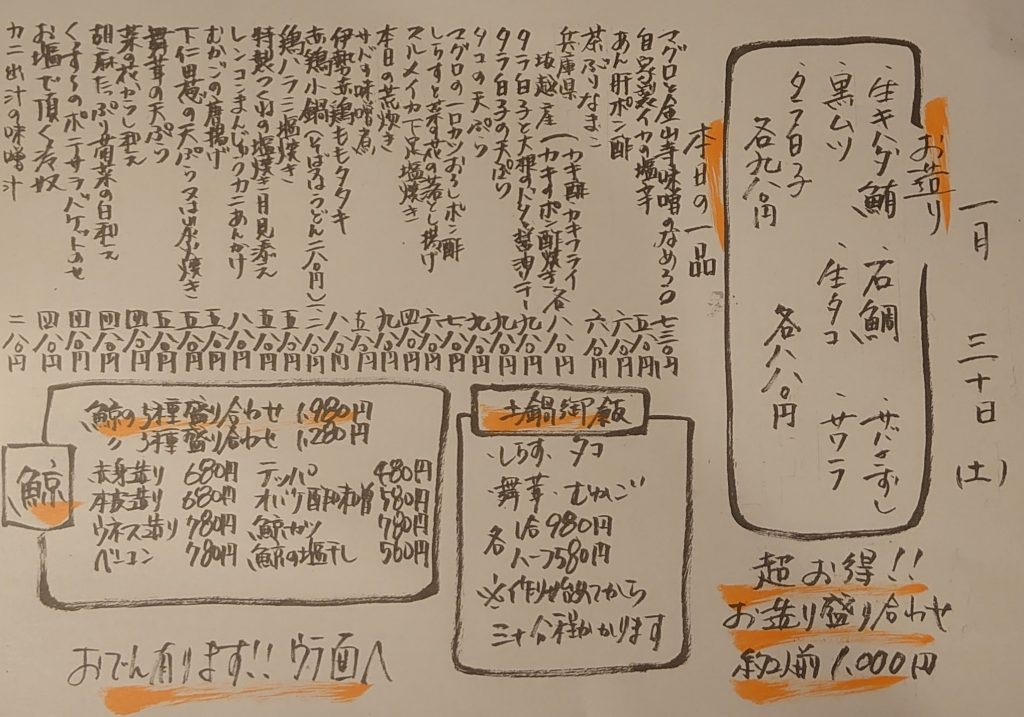 一月 三十日(土)
お造り
生キハダ鮪 石鯛 サバきずし
黒ムツ 生タコ サワラ
タラ白子
各九八〇円 各八八〇円
超お得!!
お造り盛り合わせ
約2人前1,000円
本日の一品
マグロと金山寺味噌のなめろう 七三〇円
自家製イカの塩辛 五八〇円
あん肝ポン酢 六八〇円
茶ぶりなまこ 六八〇円
兵庫県
坂越産 (カキ酢 カキフライ
カキのポン酢焼き 各八八〇円
タラ白子と大根のバター醤油ソテー 九八〇円
タラ白子の天ぷら 九八〇円
タコの天ぷら 九八〇円
マグロの一口カツおろしポン酢 七八〇円
しらすと菜の花の落とし揚げ 六八〇円
スルメイカ下足塩焼き 四八〇円
本日の荒炊き 九八〇円
サバの味噌煮 五八〇円
伊勢赤鶏ももタタキ 八八〇円
赤鶏小鍋(そば又はうどん二八〇円)
鶏ハラミ塩焼き 五八〇円
特製つくねの塩焼き月見添え 五八〇円
レンコンまんじゅうカニあんかけ 八八〇円
むかごの唐揚げ 五八〇円
下仁田葱の天ぷら又は炭火焼き 五八〇円
舞茸の天ぷら 五八〇円
菜の花からし和え 四八〇円
胡麻たっぷり菊菜の白和え 四八〇円
くずし豆のポテサラバケットのせ 四八〇円
お塩で頂く冷奴 四八〇円
カニ出汁の味噌汁 二八〇円
土鍋御飯
・しらす・タコ
・舞茸・むかご
各 1合980円
ハーフ580円
※作り始めてから
三十分程かかります
鯨
鯨の5種盛り合わせ 1,980円
〃 3種盛り合わせ 1,280円
赤身造り 680円 テッパ 480円
本皮造り 680円 オバケ酢味噌 580円
ウネス造り 780円 鯨カツ 780円
ベーコン 780円 鯨の塩干し 560円
おでん有ります!! ウラ面へ